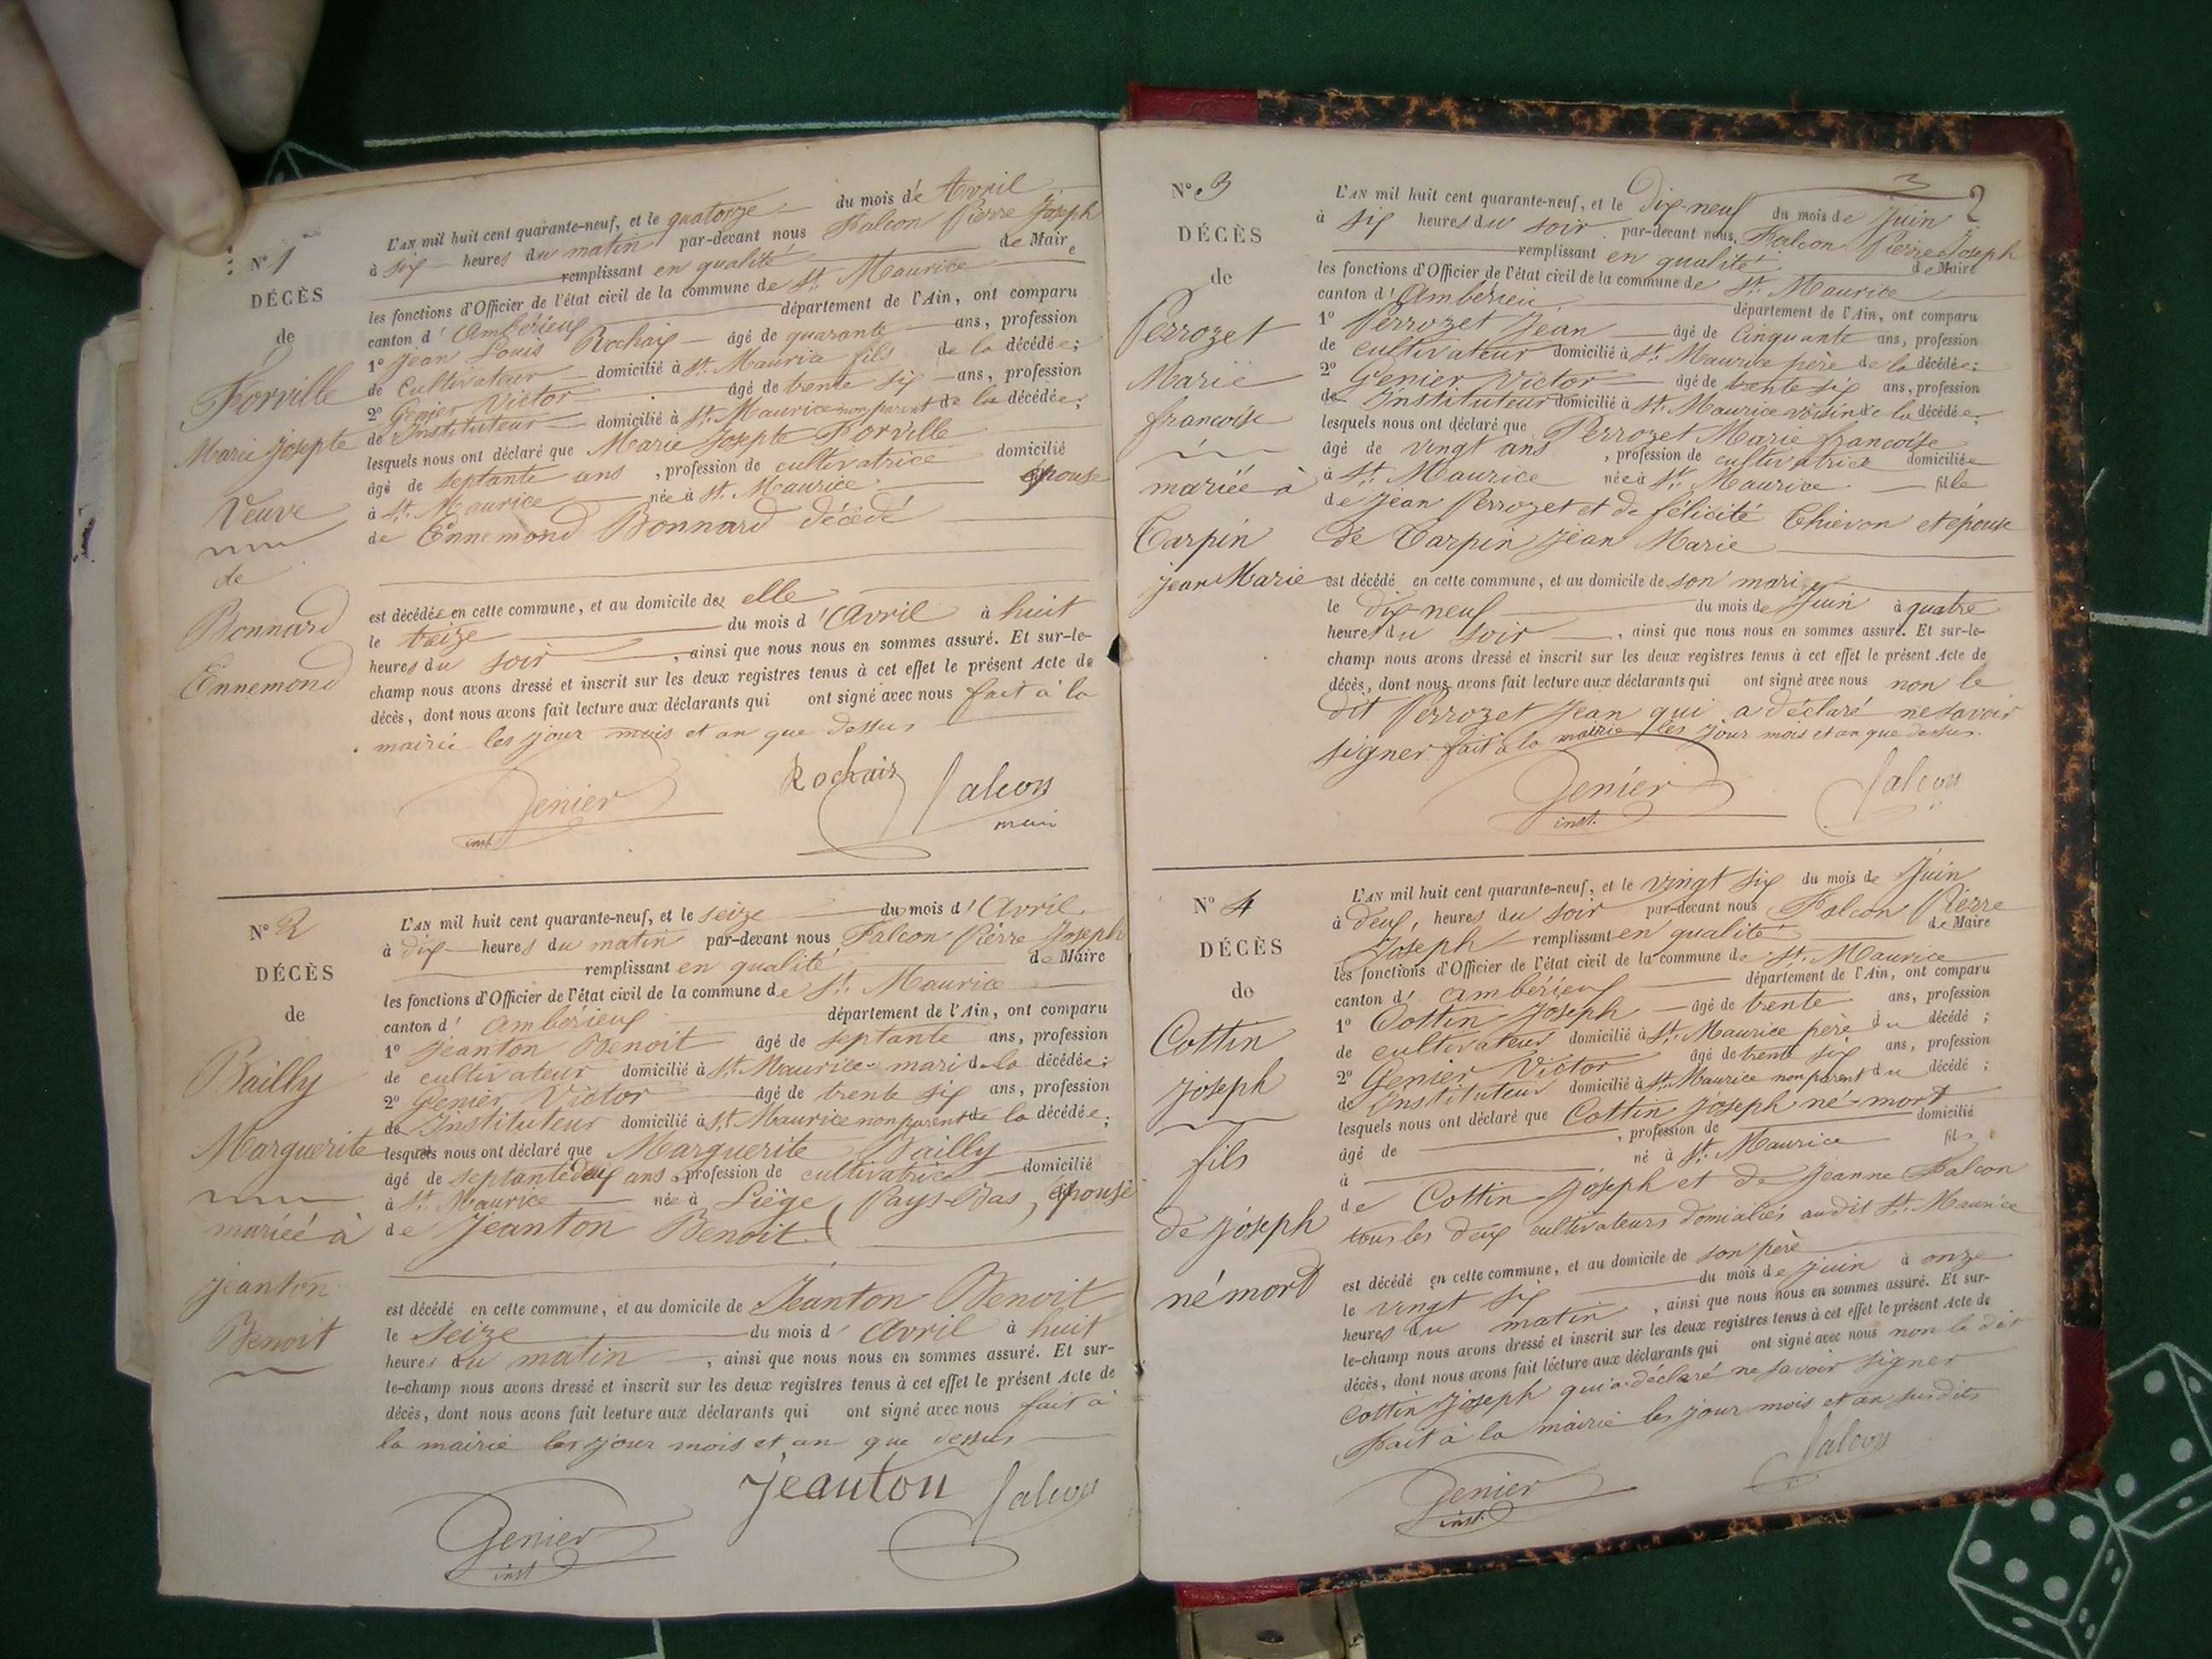 N° 1
DÉCÈS
de
Forville
Marie Josepte
Veuve
de
Bonnard
Ennemond
L'AN mil huit cent quarante-neuf, et le quatorze du mois de Avril
à six heures du matin par-devant nous Falcon Pierre Joseph
remplissant en qualité de Maire
les fonctions d'Officier de l'état civil de la commune de St. Maurice
canton d'Ambérieux département de l'Ain, ont comparu
1° Jean Louis Rochaix âgé de quarante ans, profession
de Cultivateur domicilié à St. Maurice fils de la décédée;
2° Genier Victor âgé de trente six ans, profession
de Instituteur domicilié à St. Maurice non parent de la décédée;
lesquels nous ont déclaré que Marie Josepte Forville
âgé de septante ans, profession de cultivatrice domicilié
à St. Maurice née à St. Maurice épouse
de Ennemond Bonnard décédé
est décédée en cette commune, et au domicile de elle
le treize du mois d'Avril à huit
heures du soir, ainsi que nous nous en sommes assuré. Et sur-le-
champ nous avons dressé et inscrit sur les deux registres tenus à cet effet le présent Acte de
décès, dont nous avons fait lecture aux déclarants qui ont signé avec nous fait à la
mairie les jour mois et an que dessus
Genier Rochaix Falcon
inst. maire
N° 2
DÉCÈS
de
Bailly
Marguerite
mariée à
Jeanton
Benoit
L'AN mil huit cent quarante-neuf, et le seize du mois d'Avril
à dix heures du matin par-devant nous Falcon Pierre Joseph
remplissant en qualité de Maire
les fonctions d'Officier de l'état civil de la commune de St. Maurice
canton d'Ambérieux département de l'Ain, ont comparu
1° Jeanton Benoit âgé de septante ans, profession
de cultivateur domicilié à St. Maurice mari de la décédée;
2° Genier Victor âgé de trente six ans, profession
de Instituteur domicilié à St. Maurice non parent de la décédée;
lesquels nous ont déclaré que Marguerite Bailly
âgé de septante deux ans, profession de cultivatrice domicilié
à St. Maurice née à Liège Pays-Bas, épouse
de Jeanton Benoit
est décédé en cette commune, et au domicile de Jeanton Benoit
le seize du mois d'Avril à huit
heures du matin, ainsi que nous nous en sommes assuré. Et sur-
le-champ nous avons dressé et inscrit sur les deux registres tenus à cet effet le présent Acte de
décès, dont nous avons fait lecture aux déclarants qui ont signé avec nous fait à
la mairie les jour mois et an que dessus
Genier Jeanton Falcon
inst
3 2
N° 3
DÉCÈS
de
Perrozet
Marie
francoise
mariée à
Carpin
jean Marie
L'AN mil huit cent quarante-neuf, et le dix-neuf du mois de Juin
à six heures du soir par-devant nous Falcon Pierre Joseph
remplissant en qualité de Maire
les fonctions d'Officier de l'état civil de la commune de St. Maurice
canton d'Ambérieu département de l'Ain, ont comparu
1° Perrozet Jean âgé de Cinquante ans, profession
de cultivateur domicilié à St. Maurice père de la décédée;
2° Genier Victor âgé de trente six ans, profession
de Instituteur domicilié à St. Maurice voisin de la décédée;
lesquels nous ont déclaré que Perrozet Marie francoise
âgé de vingt ans, profession de cultivatrice domiciliée
à St. Maurice née à St. Maurice fille
de Jean Perrozet et de félicité Chievon et épouse
de Carpin Jean Marie
est décédé en cette commune, et au domicile de son mari
le dix-neuf du mois de Juin à quatre
heures du soir, ainsi que nous nous en sommes assuré. Et sur-le-
champ nous avons dressé et inscrit sur les deux registres tenus à cet effet le présent Acte de
décès, dont nous avons fait lecture aux déclarants qui ont signé avec nous non le
dit Perrozet Jean qui a déclaré ne savoir
signer fait à la mairie les jour mois et an que dessus.
Genier Falcon
inst.
N° 4
DÉCÈS
de
Cottin
joseph
fils
de joseph
né mort
L'AN mil huit cent quarante-neuf, et le vingt six du mois de Juin
à deux heures du soir par-devant nous Falcon Pierre
Joseph remplissant en qualité de Maire
les fonctions d'Officier de l'état civil de la commune de St. Maurice
canton d'ambérieux département de l'Ain, ont comparu
1° Cottin Joseph âgé de trente ans, profession
de cultivateur domicilié à St. Maurice père du décédé;
2° Genier Victor âgé de trente six ans, profession
de Instituteur domicilié à St. Maurice non parent du décédé;
lesquels nous ont déclaré que Cottin joseph né-mort
âgé de , profession de domicilié
à né à St. Maurice fils
de Cottin Joseph et de Jeanne Falcon
tous les deux cultivateurs domiciliés audit St. Maurice
est décédé en cette commune, et au domicile de son père
le vingt six du mois de juin à onze
heures du matin, ainsi que nous nous en sommes assuré. Et sur-
le-champ nous avons dressé et inscrit sur les deux registres tenus à cet effet le présent Acte de
décès, dont nous avons fait lecture aux déclarants qui ont signé avec nous non le dit
Cottin Joseph qui a déclaré ne savoir signer
Fait à la mairie les jour mois et an susdits
Genier Falcon
inst.